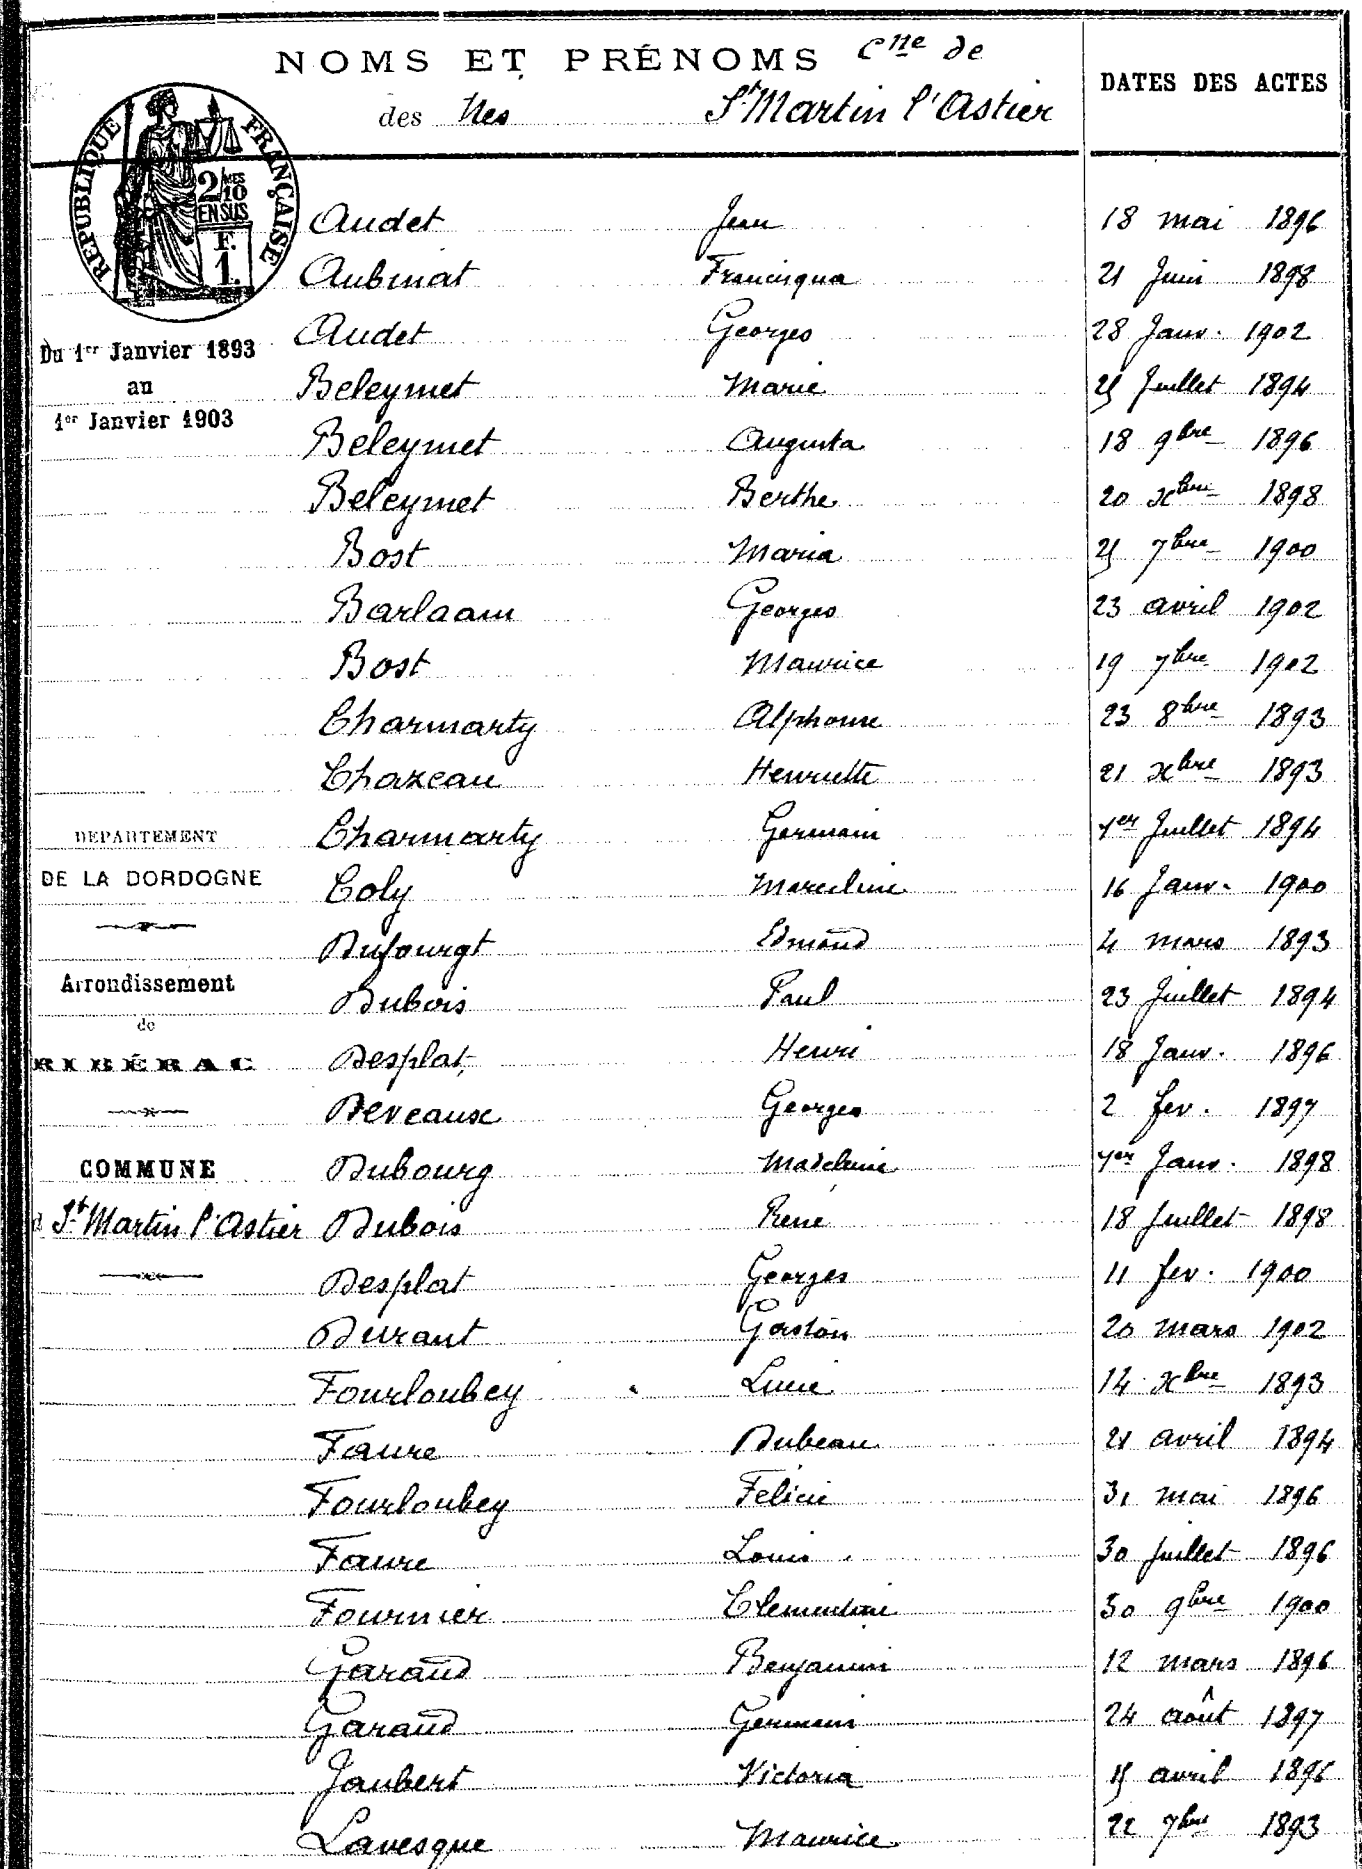 NOMS ET PRÉNOMS Cne de
des Nes St Martin l'Astier
DATES DES ACTES
RÉPUBLIQUE FRANÇAISE
2/10 MES
EN SUS
F.
1.
Du 1er Janvier 1893
au
1er Janvier 1903
DÉPARTEMENT
DE LA DORDOGNE
Arrondissement
de
RIBÉRAC
COMMUNE
d St Martin l'Astier
Audet Jean 18 mai 1896
Aubinat Francisqua 21 Juin 1898
Audet Georges 28 Janv. 1902
Beleymet Marie 25 Juillet 1894
Beleymet Augusta 18 9bre 1896
Beleymet Berthe 20 xbre 1898
Bost Maria 25 7bre 1900
Barlaam Georges 23 avril 1902
Bost Maurice 19 7bre 1902
Charmarty Alphonse 23 8bre 1893
Chazeau Henriette 21 xbre 1893
Charmarty Germain 1er Juillet 1894
Coly Marceline 16 Janv. 1900
Dufourgt Edmond 4 mars 1893
Dubois Paul 23 Juillet 1894
Desplat Henri 18 Janv. 1896
Deveaux Georges 2 fev. 1897
Dubourg Madeleine 1er Janv. 1898
Dubois René 18 Juillet 1898
Desplat Georges 11 fev. 1900
Durant Gaston 20 mars 1902
Fourloubey Lucie 14 xbre 1893
Faure Dubeau 21 avril 1894
Fourloubey Félicie 31 mai 1896
Faure Louis 30 Juillet 1896
Fournier Clementine 30 9bre 1900
Garaud Benjamin 12 mars 1896
Garaud Germain 24 août 1897
Jaubert Victoria 15 avril 1896
Lavesque Maurice 22 7bre 1893